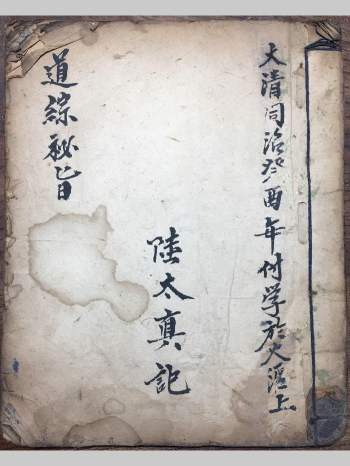 大清同治癸酉年付学於大滘上
陸太真記
道綜秘旨